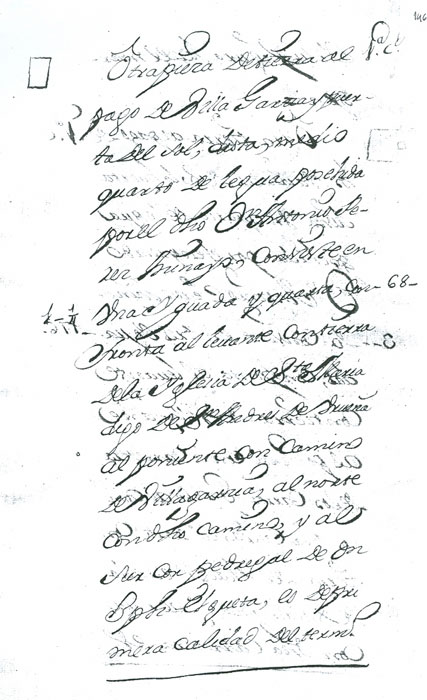 146
Otra pieza de tierra al
pago de Villa Garzia y Puer-
ta del Sol, dista medio
quarto de legua posehida
por el dho Dn Antonio Pe-
rez consiste en
una Yguada y quarta, Con- 68-
fronta al levante con tierra
de la Yglesia de Sta Maria
digo de Sn Pedro de
al poniente con camino
de Villagarzia, al norte
con dho camino, y al
sur con pedregal de Dn
Jph Ezqueta, es de pri
mera calidad del termi